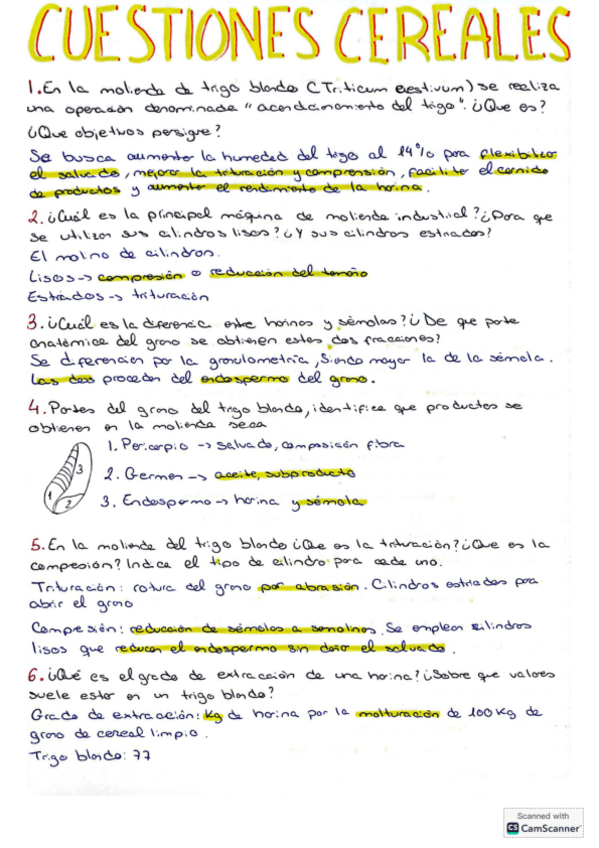 CUESTIONES CEREALES
1. En la molienda de trigo blando (Triticum aestivum) se realiza
una operación denominada "acondicionamiento del trigo". ¿Que es?
¿Que objetivos persigue?
Se busca aumentar la humedad del trigo al 14% para flexibilizar
el salvado, mejorar la trituración y comprensión, facilitar el cernido
de productos y aumentar el rendimiento de la harina.
2. ¿Cuál es la principal máquina de molienda industrial? ¿Para que
se utilizan sus cilindros lisos? ¿Y sus cilindros estriados?
El molino de cilindros.
Lisos -> compresión o reducción del tamaño
Estriados -> trituración
3. ¿Cuál es la diferencia entre harinas y sémolas? ¿De que parte
anatómica del grano se obtienen estas dos fracciones?
Se diferencian por la granulometría, siendo mayor la de la sémola.
Las dos proceden del endospermo del grano.
4. Partes del grano del trigo blando, identifica que productos se
obtienen en la molienda seca
1. Pericarpio -> salvado, composición fibra
2. Germen -> aceite, subproducto
3. Endospermo -> harina y sémola
3
1
2
5. En la molienda del trigo blando ¿Que es la trituración? ¿Que es la
compesión? Indica el tipo de cilindro para cada uno.
Trituración: rotura del grano por abrasión. Cilindros estriados para
abrir el grano
Compresión: reducción de sémolas a semolinas. Se emplean cilindros
lisos que reducen el endospermo sin dañar el salvado.
6. ¿Qué es el grado de extracción de una harina? ¿Sobre que valores
suele estar en un trigo blando?
Grado de extracción: Kg de harina por la molturación de 100 Kg de
grano de cereal limpio.
Trigo blando: 77
Scanned with
CS CamScanner